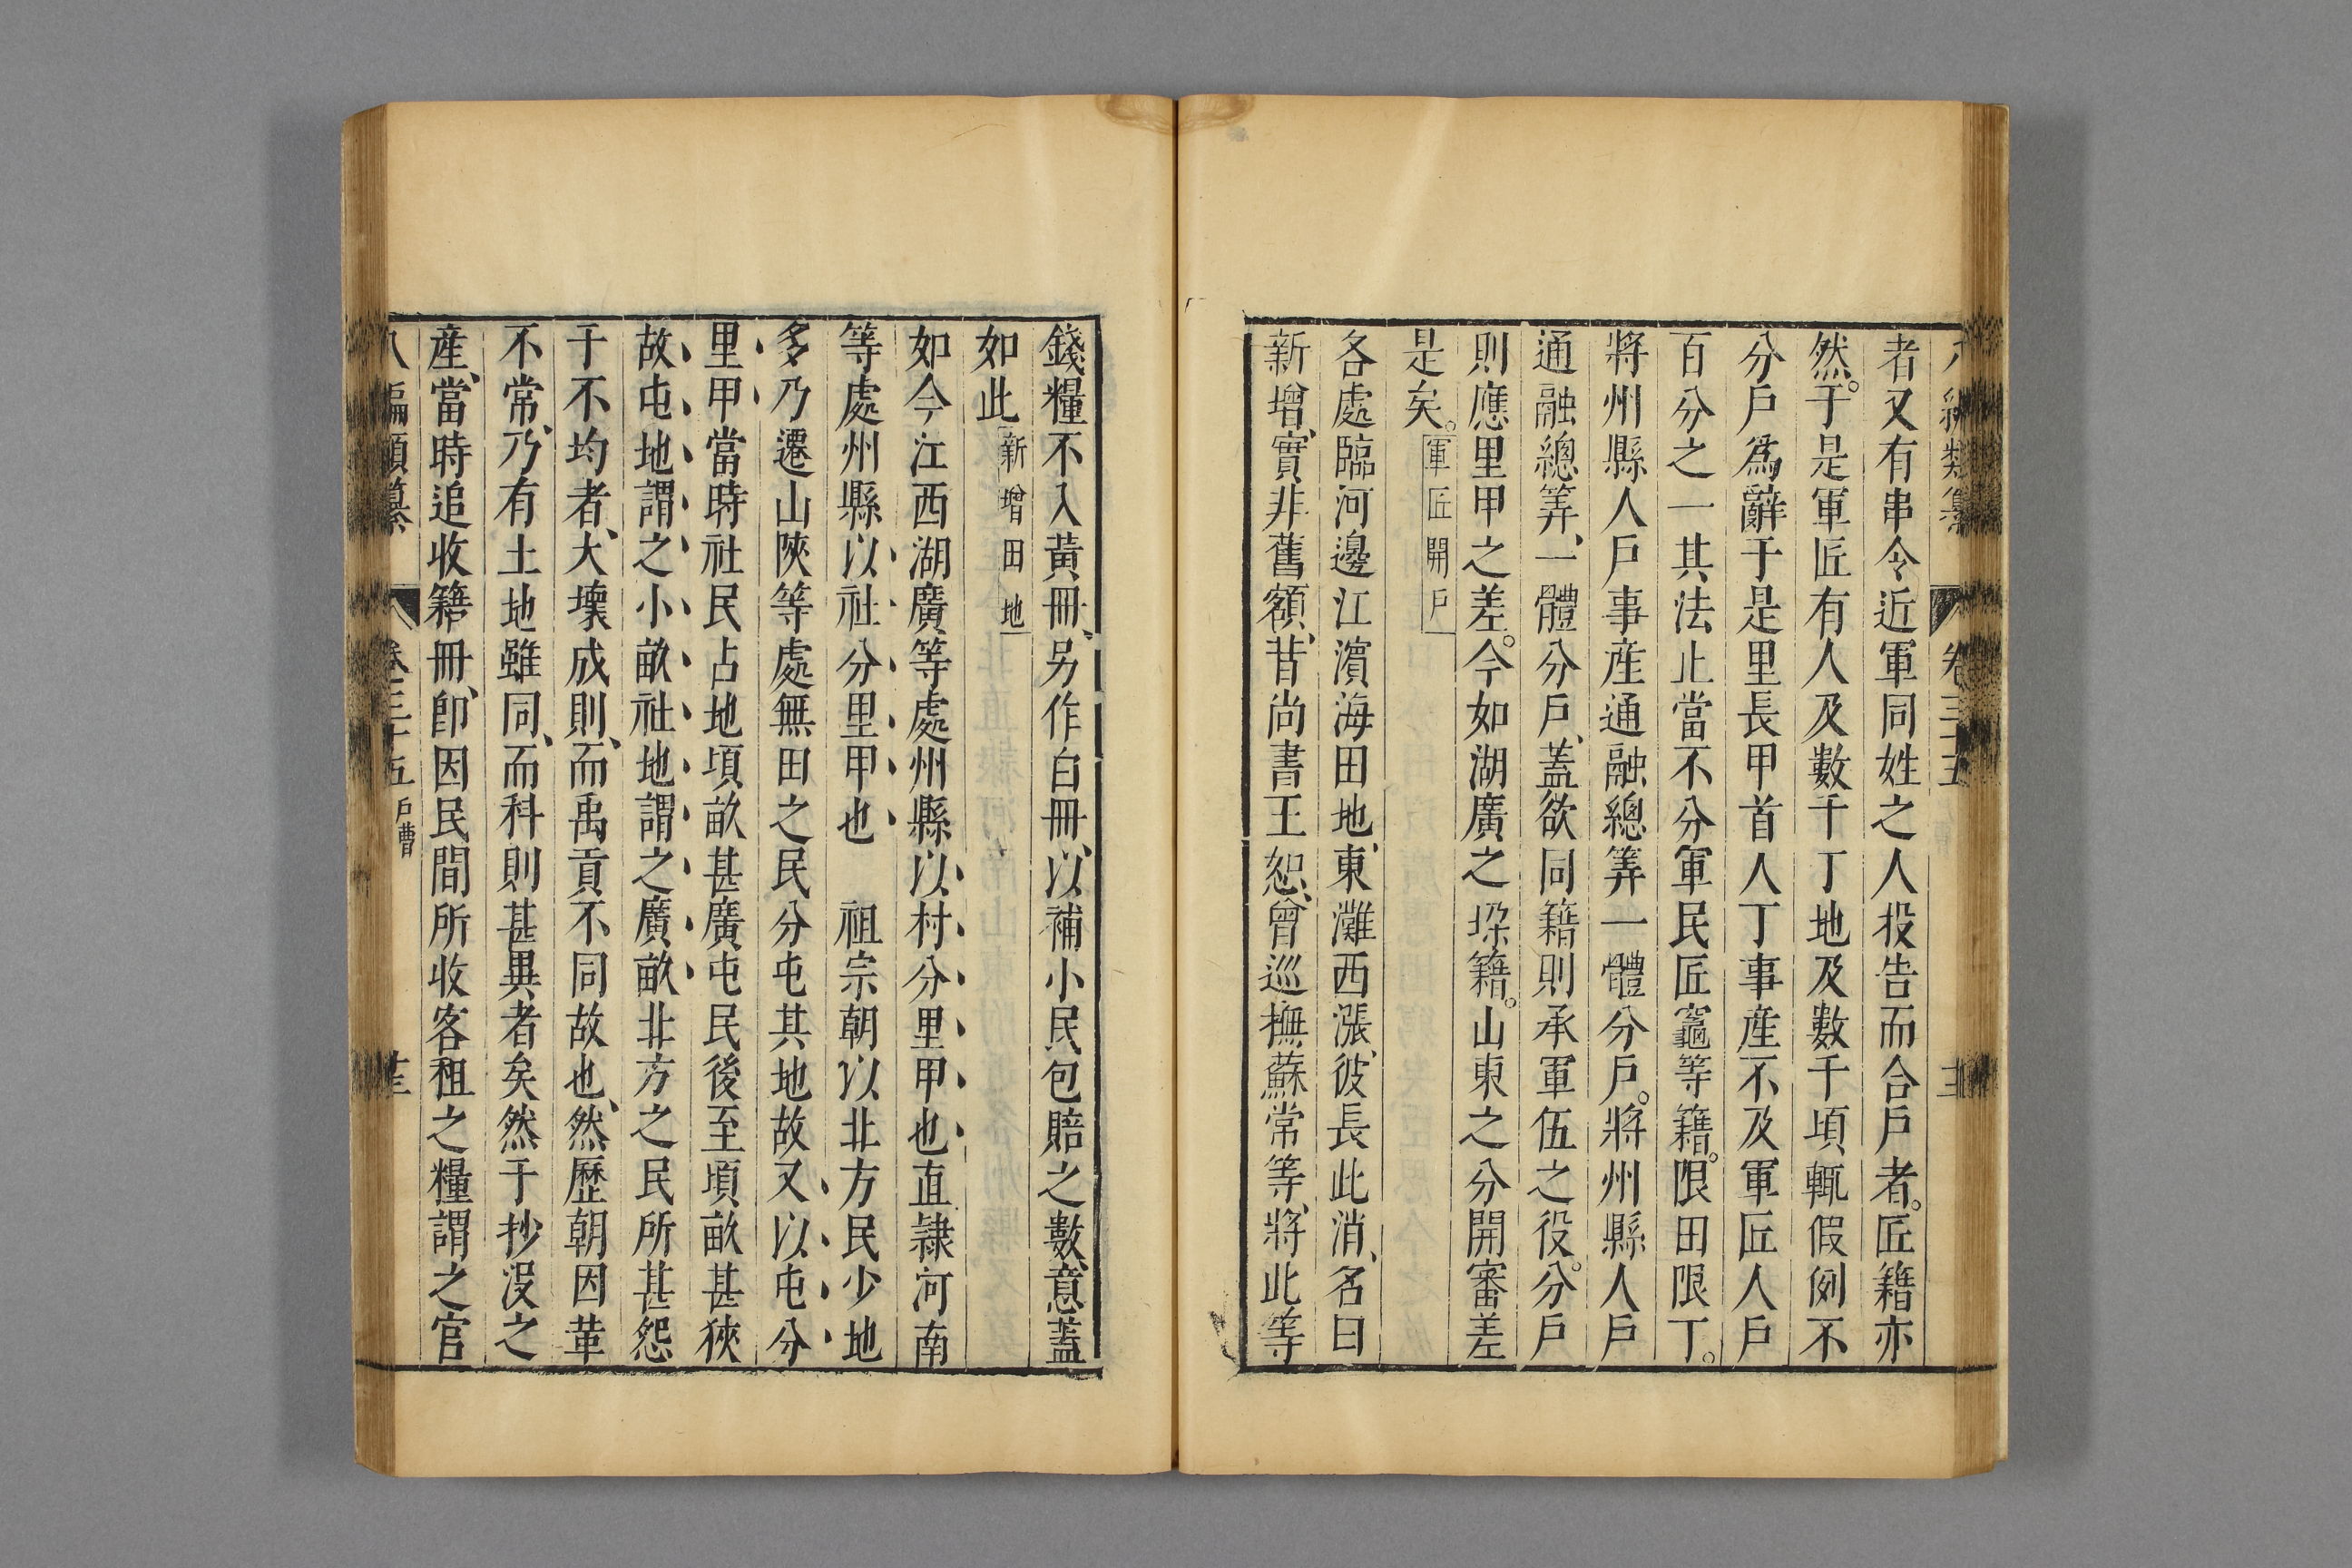 八編類纂 卷三十五
者又有串令近軍同姓之人投告而合戶者。匠籍亦
然。于是軍匠有人及數千丁地及數千頃輒假例不
分戶爲辭于是里長甲首人丁事産不及軍匠人戶
百分之一其法止當不分軍民匠竈等籍。限田限丁。
將州縣人戶事産通融總筭一體分戶。將州縣人戶
通融總筭、一體分戶、蓋欲同籍則承軍伍之役。分戶
則應里甲之差。今如湖廣之垜籍。山東之分開審差
是矣。軍匠開戶
各處臨河邊江濱海田地、東灘西漲、彼長此消、名曰
新增、實非舊額、昔尚書王恕、曾巡撫蘇常等、將此等
錢糧不入黃冊、另作白冊、以補小民包賠之數、意蓋
如此 新增田地
如今江西湖廣等處州縣以村分里甲也直隷河南
等處州縣以社分里甲也　祖宗朝以北方民少地
多乃遷山陝等處無田之民分屯其地故又以屯分
里甲當時社民占地頃畝甚廣屯民後至頃畝甚狹
故屯地謂之小畝社地謂之廣畝北方之民所甚怨
于不均者、大壞成則、而禹貢不同故也、然歷朝因革
不常、乃有土地雖同、而科則甚異者矣然于抄沒之
産、當時追收籍冊、卽因民間所收客租之糧謂之官
八編類纂 卷三十五 戶曹